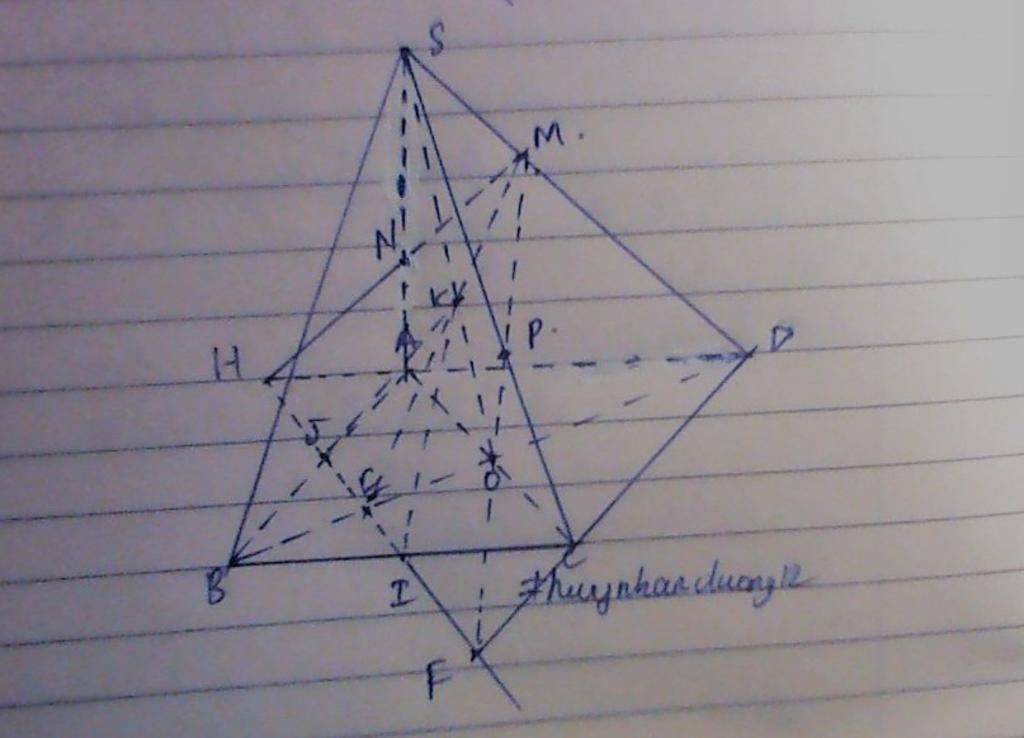 S
M.
N
K
A
P.
H
D
J
E
O
B
I
C
thuynhanduong12
F